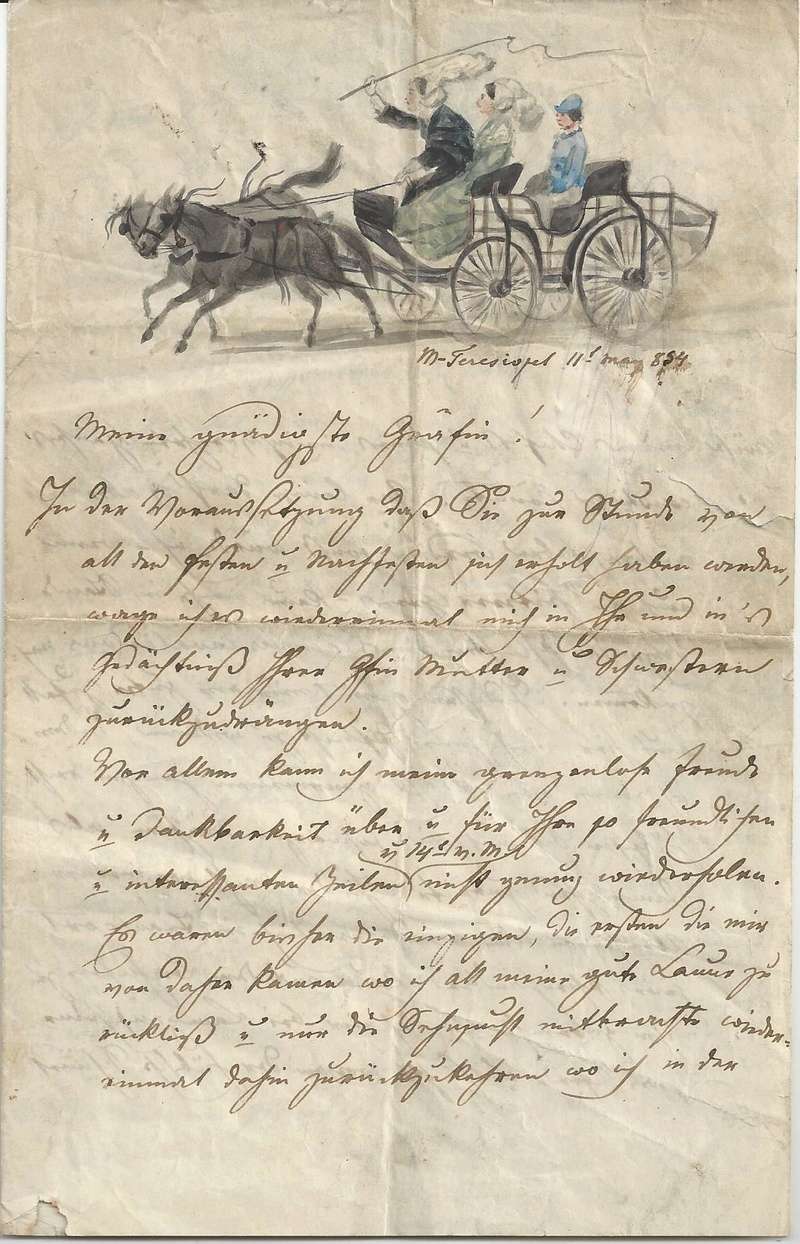 M-Teresiopel 11t may 854
Meine gnädigste Gräfin!
In der Voraussetzung daß Sie zur Stunde von
all den Festen u Nachfesten sich erholt haben werden,
wage ich es wiedereinmal mich in Ihr und in's
Gedächtniß Ihrer Gfin Mutter u Schwestern
zurückzudrängen.
Vor allem kann ich meine grenzenlose Freude
u Dankbarkeit über u für Ihre so freundlichen
v 14t v. M.
u interessanten Zeilen nicht genug wiederholen.
Es waren bisher die einzigen, die ersten die mir
von daher kamen wo ich all meine gute Laune zu
rückließ u nur die Sehnsucht mitbrachte wieder-
einmal dahin zurückzukehren wo ich in der